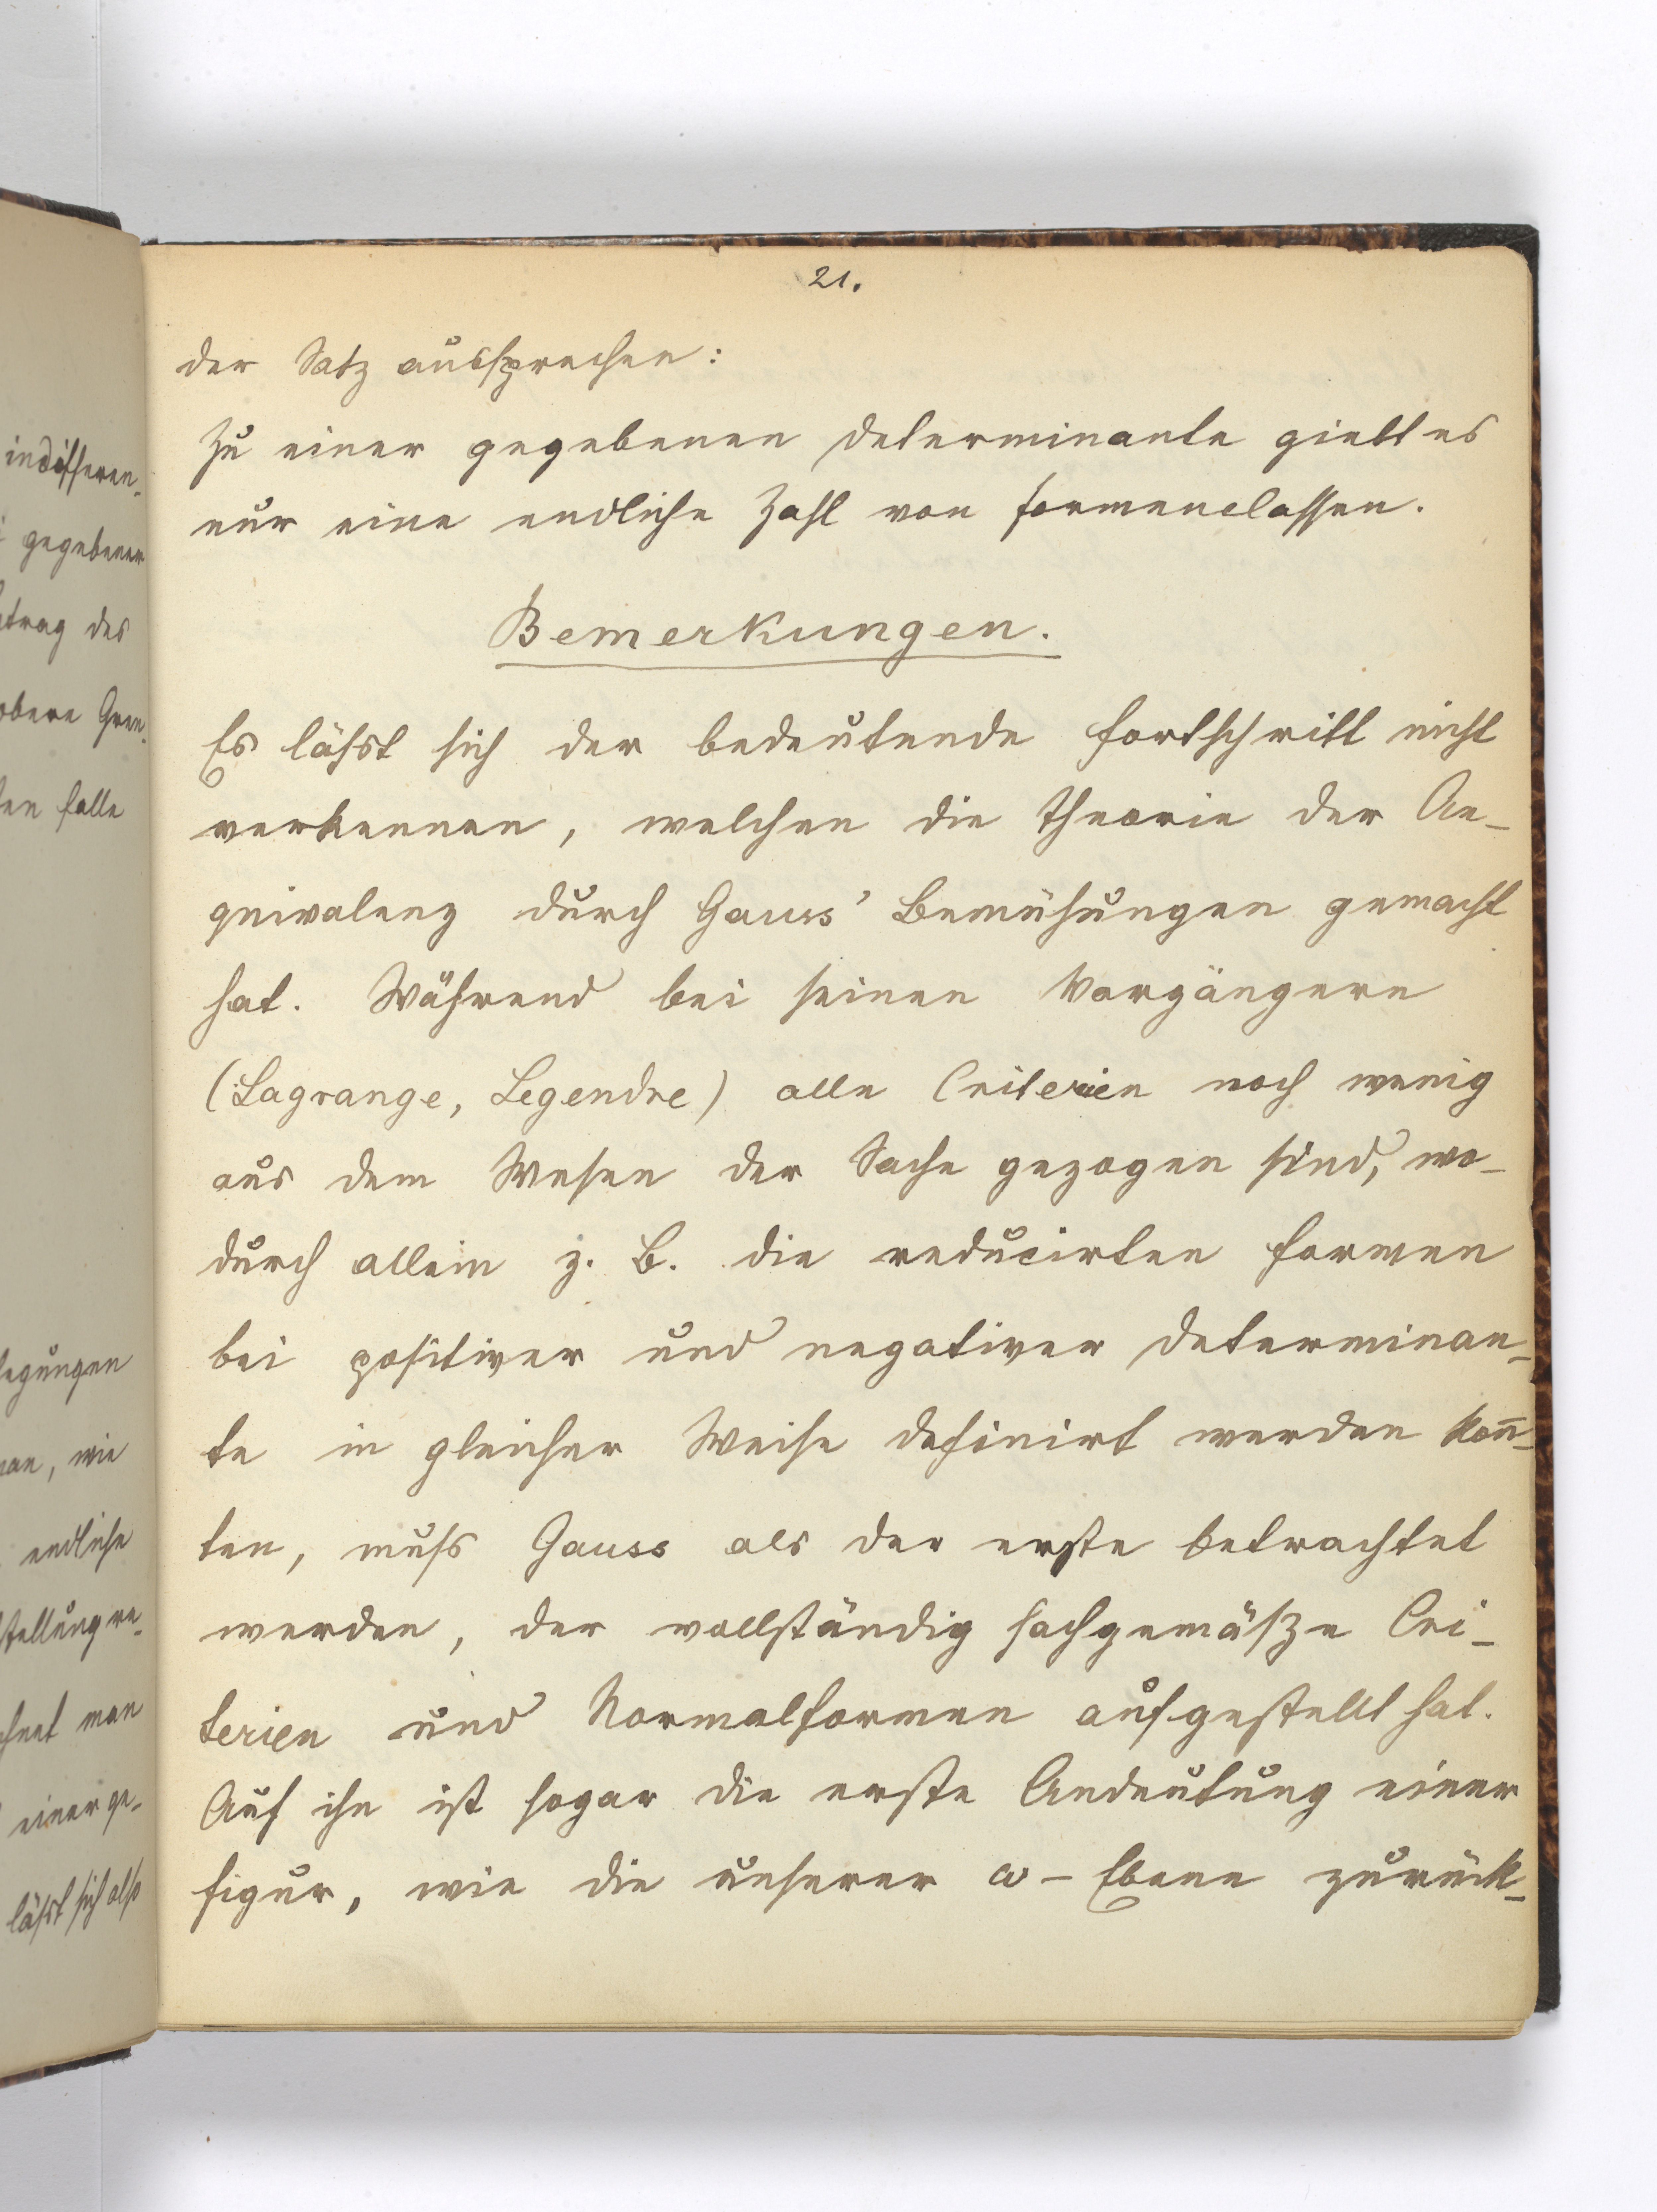 indifferen-
gegebener
trag des
obere Gren-
ten Falle
legungen
man, wie
endliche
stellung re-
chnet man
einer ge-
läßt sich also
21.
der Satz aussprechen:
Zu einer gegebenen Determinante giebt es
nur eine endliche Zahl von Formenclassen.
Bemerkungen.
Es läßt sich der bedeutende Fortschritt nicht
verkennen, welchen die Theorie der Ae-
quivalenz durch Gauss' Bemühungen gemacht
hat. Während bei seinen Vorgängern
(Lagrange, Legendre) alle Criterien noch wenig
aus dem Wesen der Sache gezogen sind, wo-
durch allein z. B. die reducirten Formen
bei positiver und negativer Determinan-
te in gleicher Weise definirt werden kon̄-
ten, muß Gauss als der erste betrachtet
werden, der vollständig sachgemäße Cri-
terien und Normalformen aufgestellt hat.
Auf ihn ist sogar die erste Andeutung einer
Figur, wie die unserer ω-Ebene zurück-